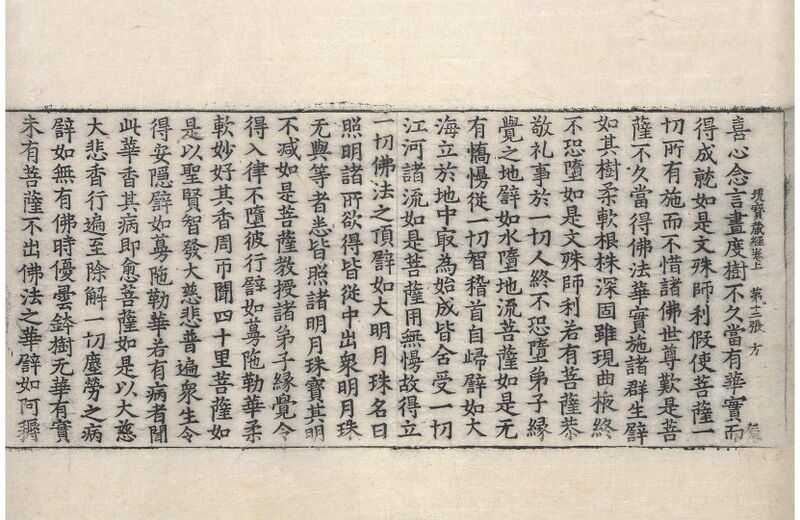 現寶藏經卷上 第十三張 方
喜心念言晝度樹不久當有華實而
得成就如是文殊師利假使菩薩一
切所有施而不惜諸佛世尊歎是菩
薩不久當得佛法華實施諸群生譬
如其樹柔軟根株深固雖現曲柀終
不恐墮如是文殊師利若有菩薩恭
敬礼事於一切人終不恐墮弟子緣
覺之地譬如水墮地流菩薩如是无
有憍慢從一切智稽首自歸譬如大
海立於地中㝡為始成皆含受一切
江河諸流如是菩薩用無慢故得立
一切佛法之頂譬如大明月珠名曰
照明諸所欲得皆從中出衆明月珠
无與等者悉皆照諸明月珠寶其明
不减如是菩薩教授諸弟子緣覺令
得入律不墮彼行譬如蒡陁勒華柔
軟妙好其香周帀聞四十里菩薩如
是以聖賢智發大慈悲普遍衆生令
得安隱譬如蒡陁勒華若有病者聞
此華香其病即愈菩薩如是以大慈
大悲香行遍至除解一切塵勞之病
譬如無有佛時優曇鉢樹无華有實
未有菩薩不出佛法之華譬如阿耨